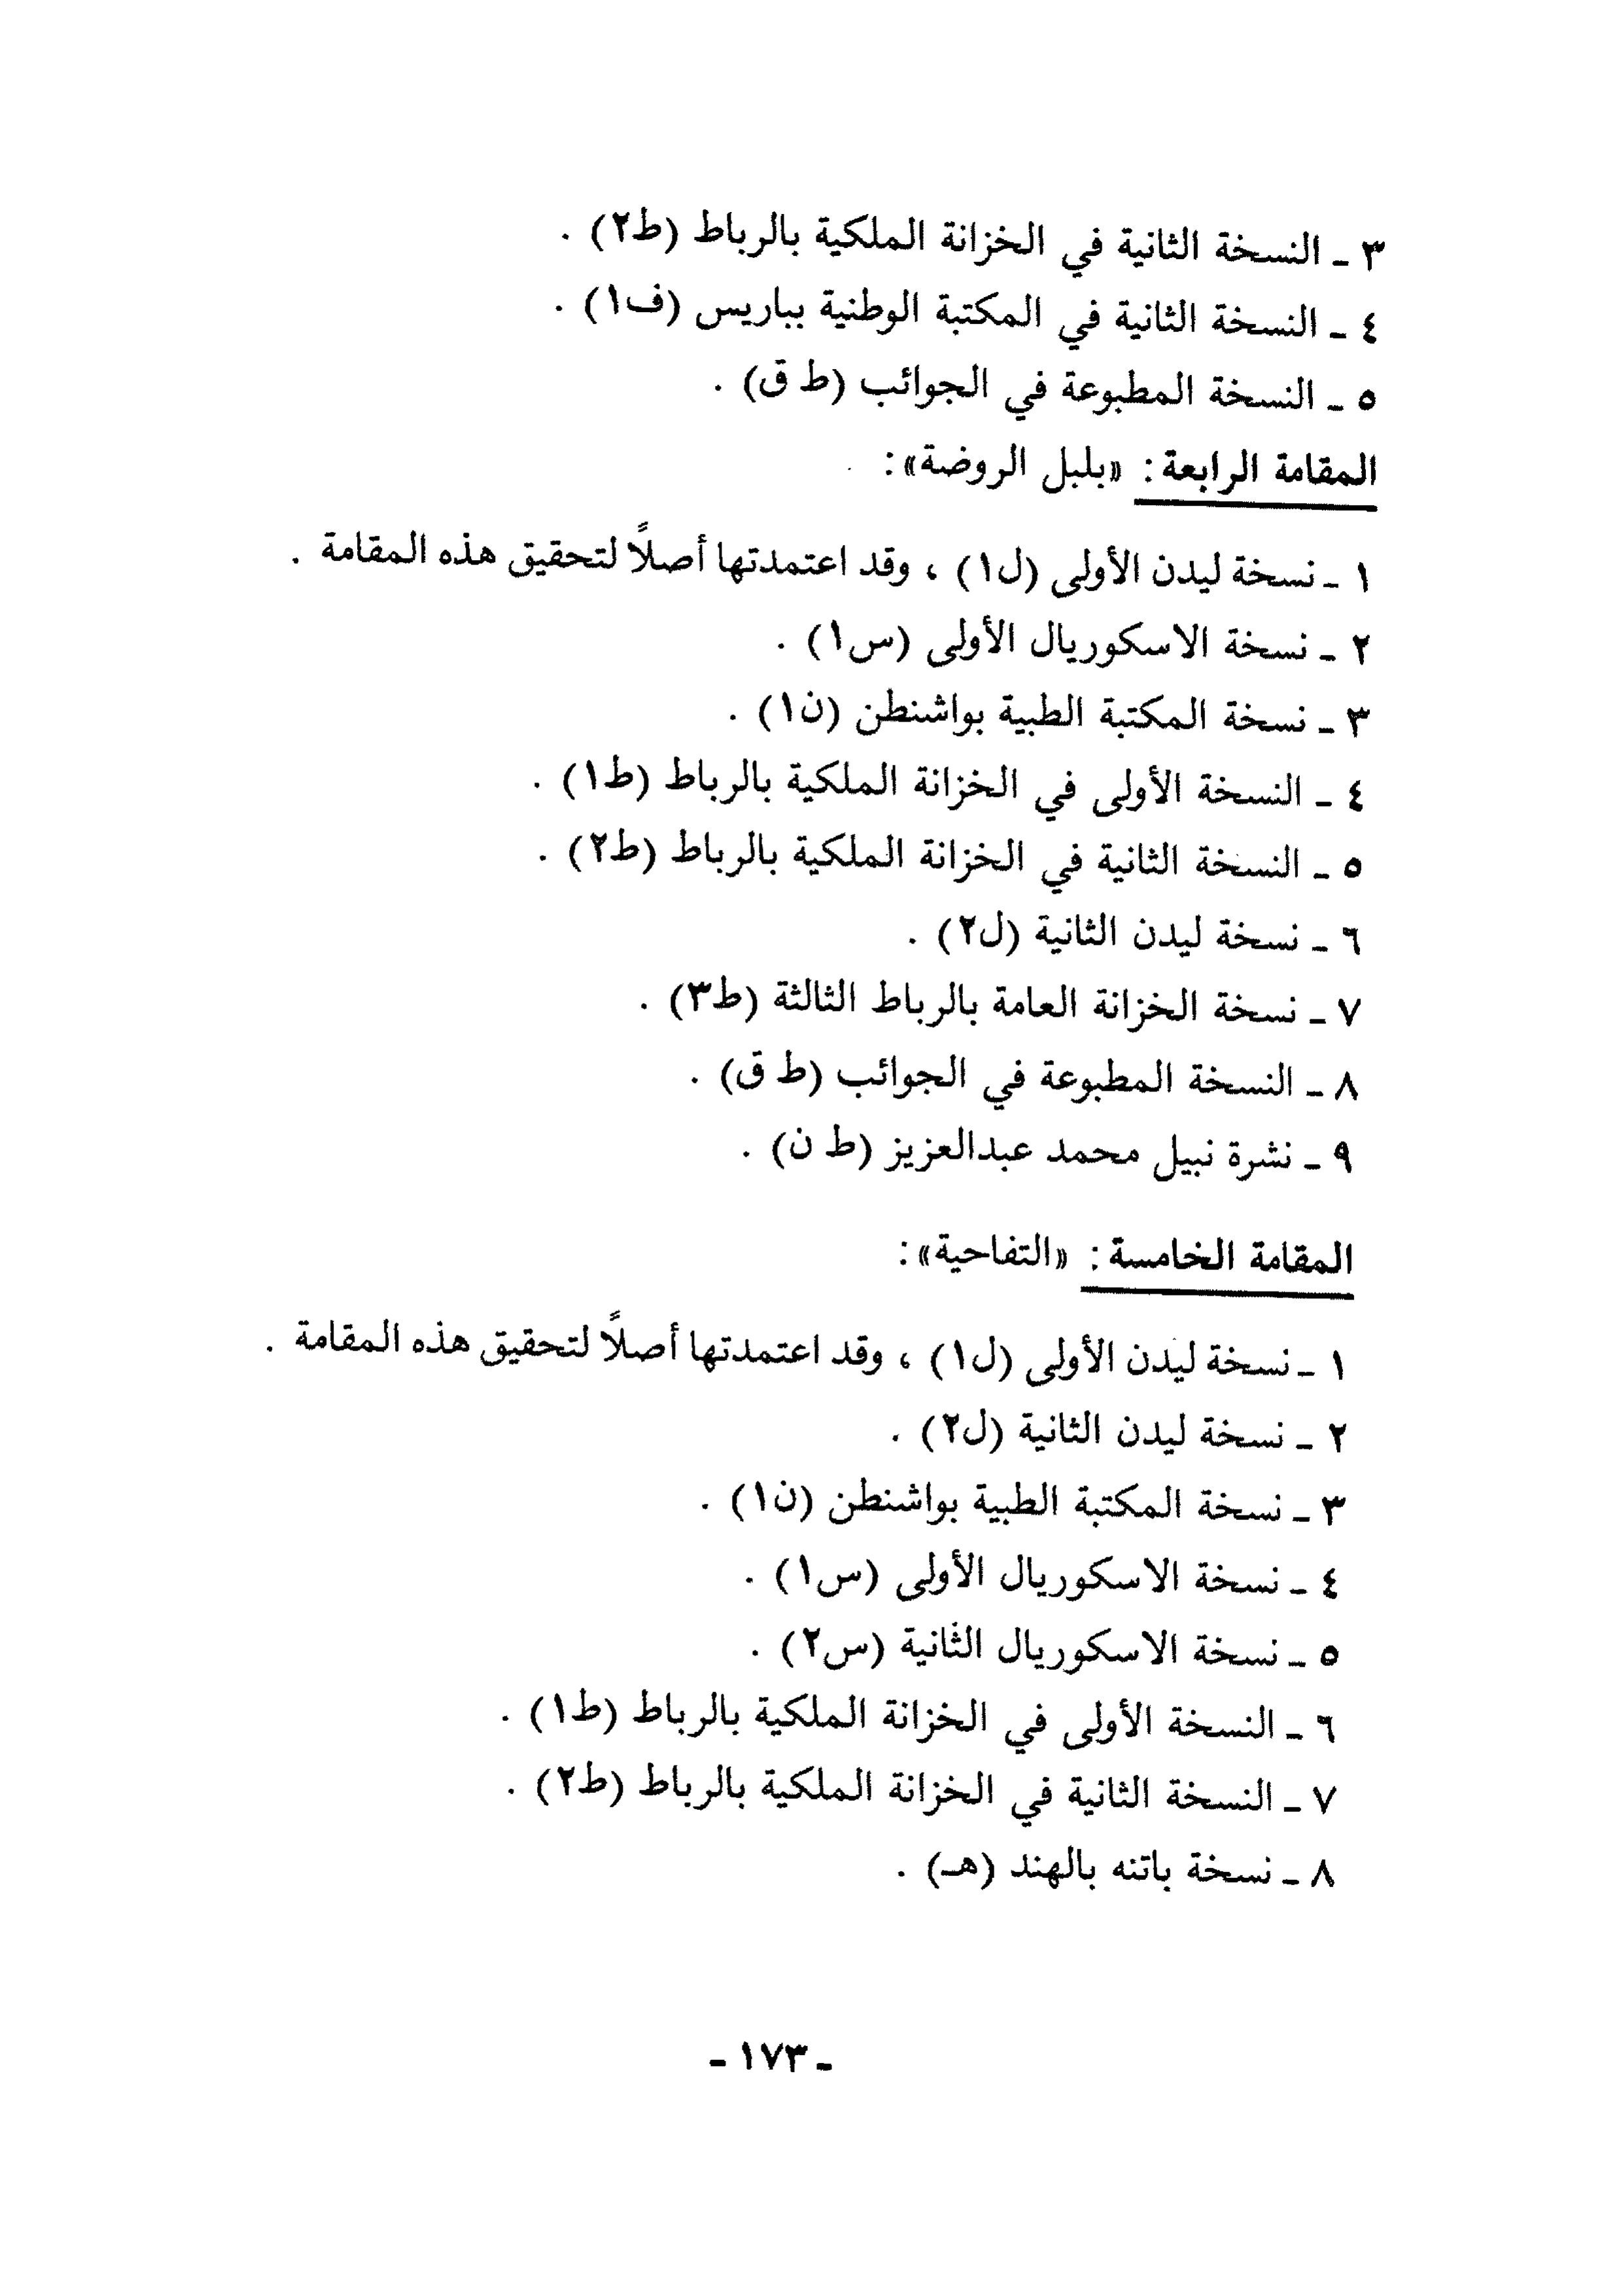 ٣ ـ النسخة الثانية في الخزانة الملكية بالرباط (ط٢) .
٤ ـ النسخة الثانية في المكتبة الوطنية بباريس (ف١) .
٥ ـ النسخة المطبوعة في الجوائب (ط ق) .
المقامة الرابعة : «بلبل الروضة»:
١ ـ نسخة ليدن الأولى (ل١) ، وقد اعتمدتها أصلاً لتحقيق هذه المقامة .
٢ ـ نسخة الاسكوريال الأولى (س١) .
٣ ـ نسخة المكتبة الطبية بواشنطن (ن١) .
٤ ـ النسخة الأولى في الخزانة الملكية بالرباط (ط١) .
٥ ـ النسخة الثانية في الخزانة الملكية بالرباط (ط٢) .
٦ ـ نسخة ليدن الثانية (ل٢) .
٧ ـ نسخة الخزانة العامة بالرباط الثالثة (ط٣) .
٨ ـ النسخة المطبوعة في الجوائب (ط ق) .
٩ ـ نشرة نبيل محمد عبدالعزيز (ط ن) .
المقامة الخامسة : «التفاحية»:
١ ـ نسخة ليدن الأولى (ل١) ، وقد اعتمدتها أصلاً لتحقيق هذه المقامة .
٢ ـ نسخة ليدن الثانية (ل٢) .
٣ ـ نسخة المكتبة الطبية بواشنطن (ن١) .
٤ ـ نسخة الاسكوريال الأولى (س١) .
٥ ـ نسخة الاسكوريال الثانية (س٢) .
٦ ـ النسخة الأولى في الخزانة الملكية بالرباط (ط١) .
٧ ـ النسخة الثانية في الخزانة الملكية بالرباط (ط٢) .
٨ ـ نسخة باتنه بالهند (هـ) .
ـ ١٧٣ ـ